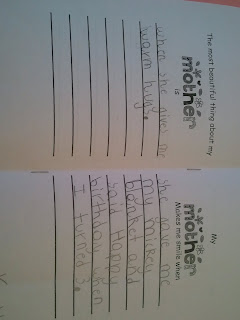 The most beautiful thing about my
mother
is
when she give me
warm hugs.
My
mother
Makes me smile when
she gave me
my mickey
blanket and
said Happy
birthday when
I turned 3.